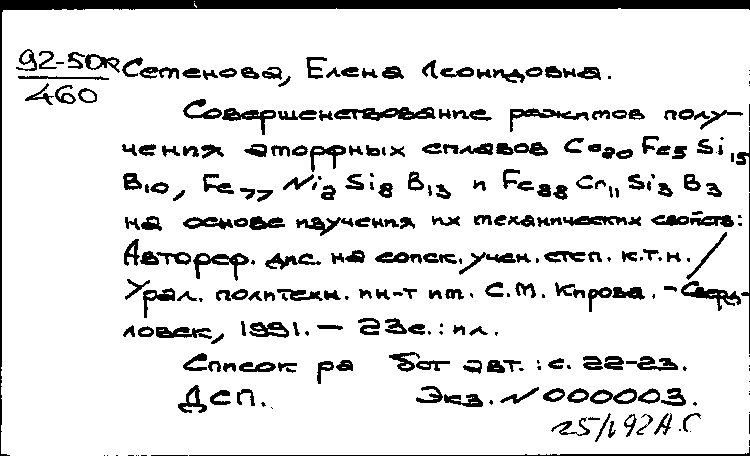 92-5DR
460
Семенова, Елена Леонидовна.
Совершенствование режимов полу-
чения аморфных сплавов Co80 Fe5 Si15
B10, Fe77 Ni2 Si8 B13 и Fe88 Cr11 Si3 B3
на основе изучения их механических свойств:
Автореф. дис. на соиск. учен. степ. к.т.н. /
Урал. политехн. ин-т им. С.М. Кирова. - Сверд-
ловск, 1991. — 23с.: ил.
Список ра бот авт. : с. 22-23.
ДСП. Экз. N 000003.
25/V 92 А.С